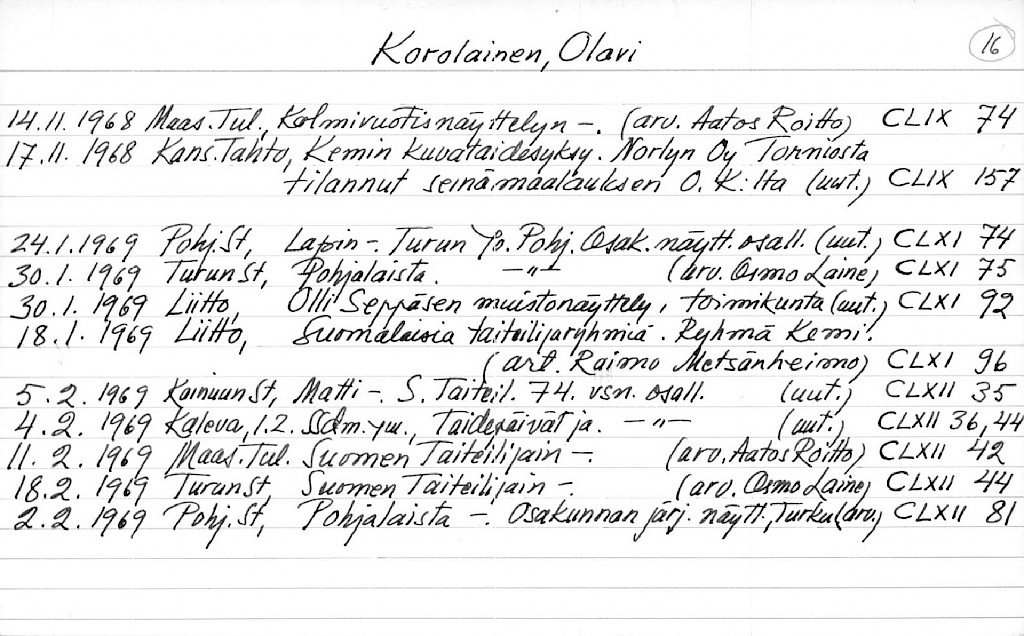 Korolainen, Olavi 16
14.11.1968 Maas.Tul., Kolmivuotisnäyttelyn -. (arv. Aatos Roitto) CLIX 74
17.11.1968 Kans.Tahto, Kemin kuvataidesyksy. Norlyn Oy Torniosta
tilannut seinämaalauksen O.K:lta (uut.) CLIX 157
24.1.1969 Pohj.St, Lapin -. Turun Yo. Pohj. Osak. näytt. osall. (uut.) CLXI 74
30.1.1969 TurunSt, Pohjalaista. -"- (arv. Osmo Laine) CLXI 75
30.1.1969 Liitto, Olli Seppäsen muistonäyttely, toimikunta (uut.) CLXI 92
18.1.1969 Liitto, Suomalaisia taiteilijaryhmiä. Ryhmä Kemi.
(art. Raimo Metsänheimo) CLXI 96
5.2.1969 KainuunSt, Matti -. S. Taiteil. 74. vsn. osall. (uut.) CLXII 35
4.2.1969 Kaleva, 1.2. SSdm. ym., Taidepäivät ja. -"- (uut.) CLXII 36,44
11.2.1969 Maas.Tul. Suomen Taiteilijain -. (arv. Aatos Roitto) CLXII 42
18.2.1969 TurunSt, Suomen Taiteilijain -. (arv. Osmo Laine) CLXII 44
2.2.1969 Pohj.St, Pohjalaista -. Osakunnan järj. näytt., Turku (arv.) CLXII 81